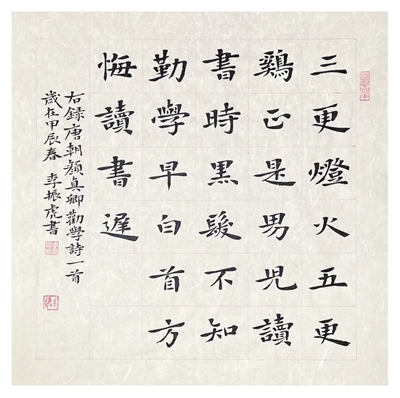 三更燈火五更
鷄正是男兒讀
書時黑髮不知
勤學早白首方
悔讀書遲
右録唐朝顔真卿勸學詩一首
歲在甲辰春 李振虎書